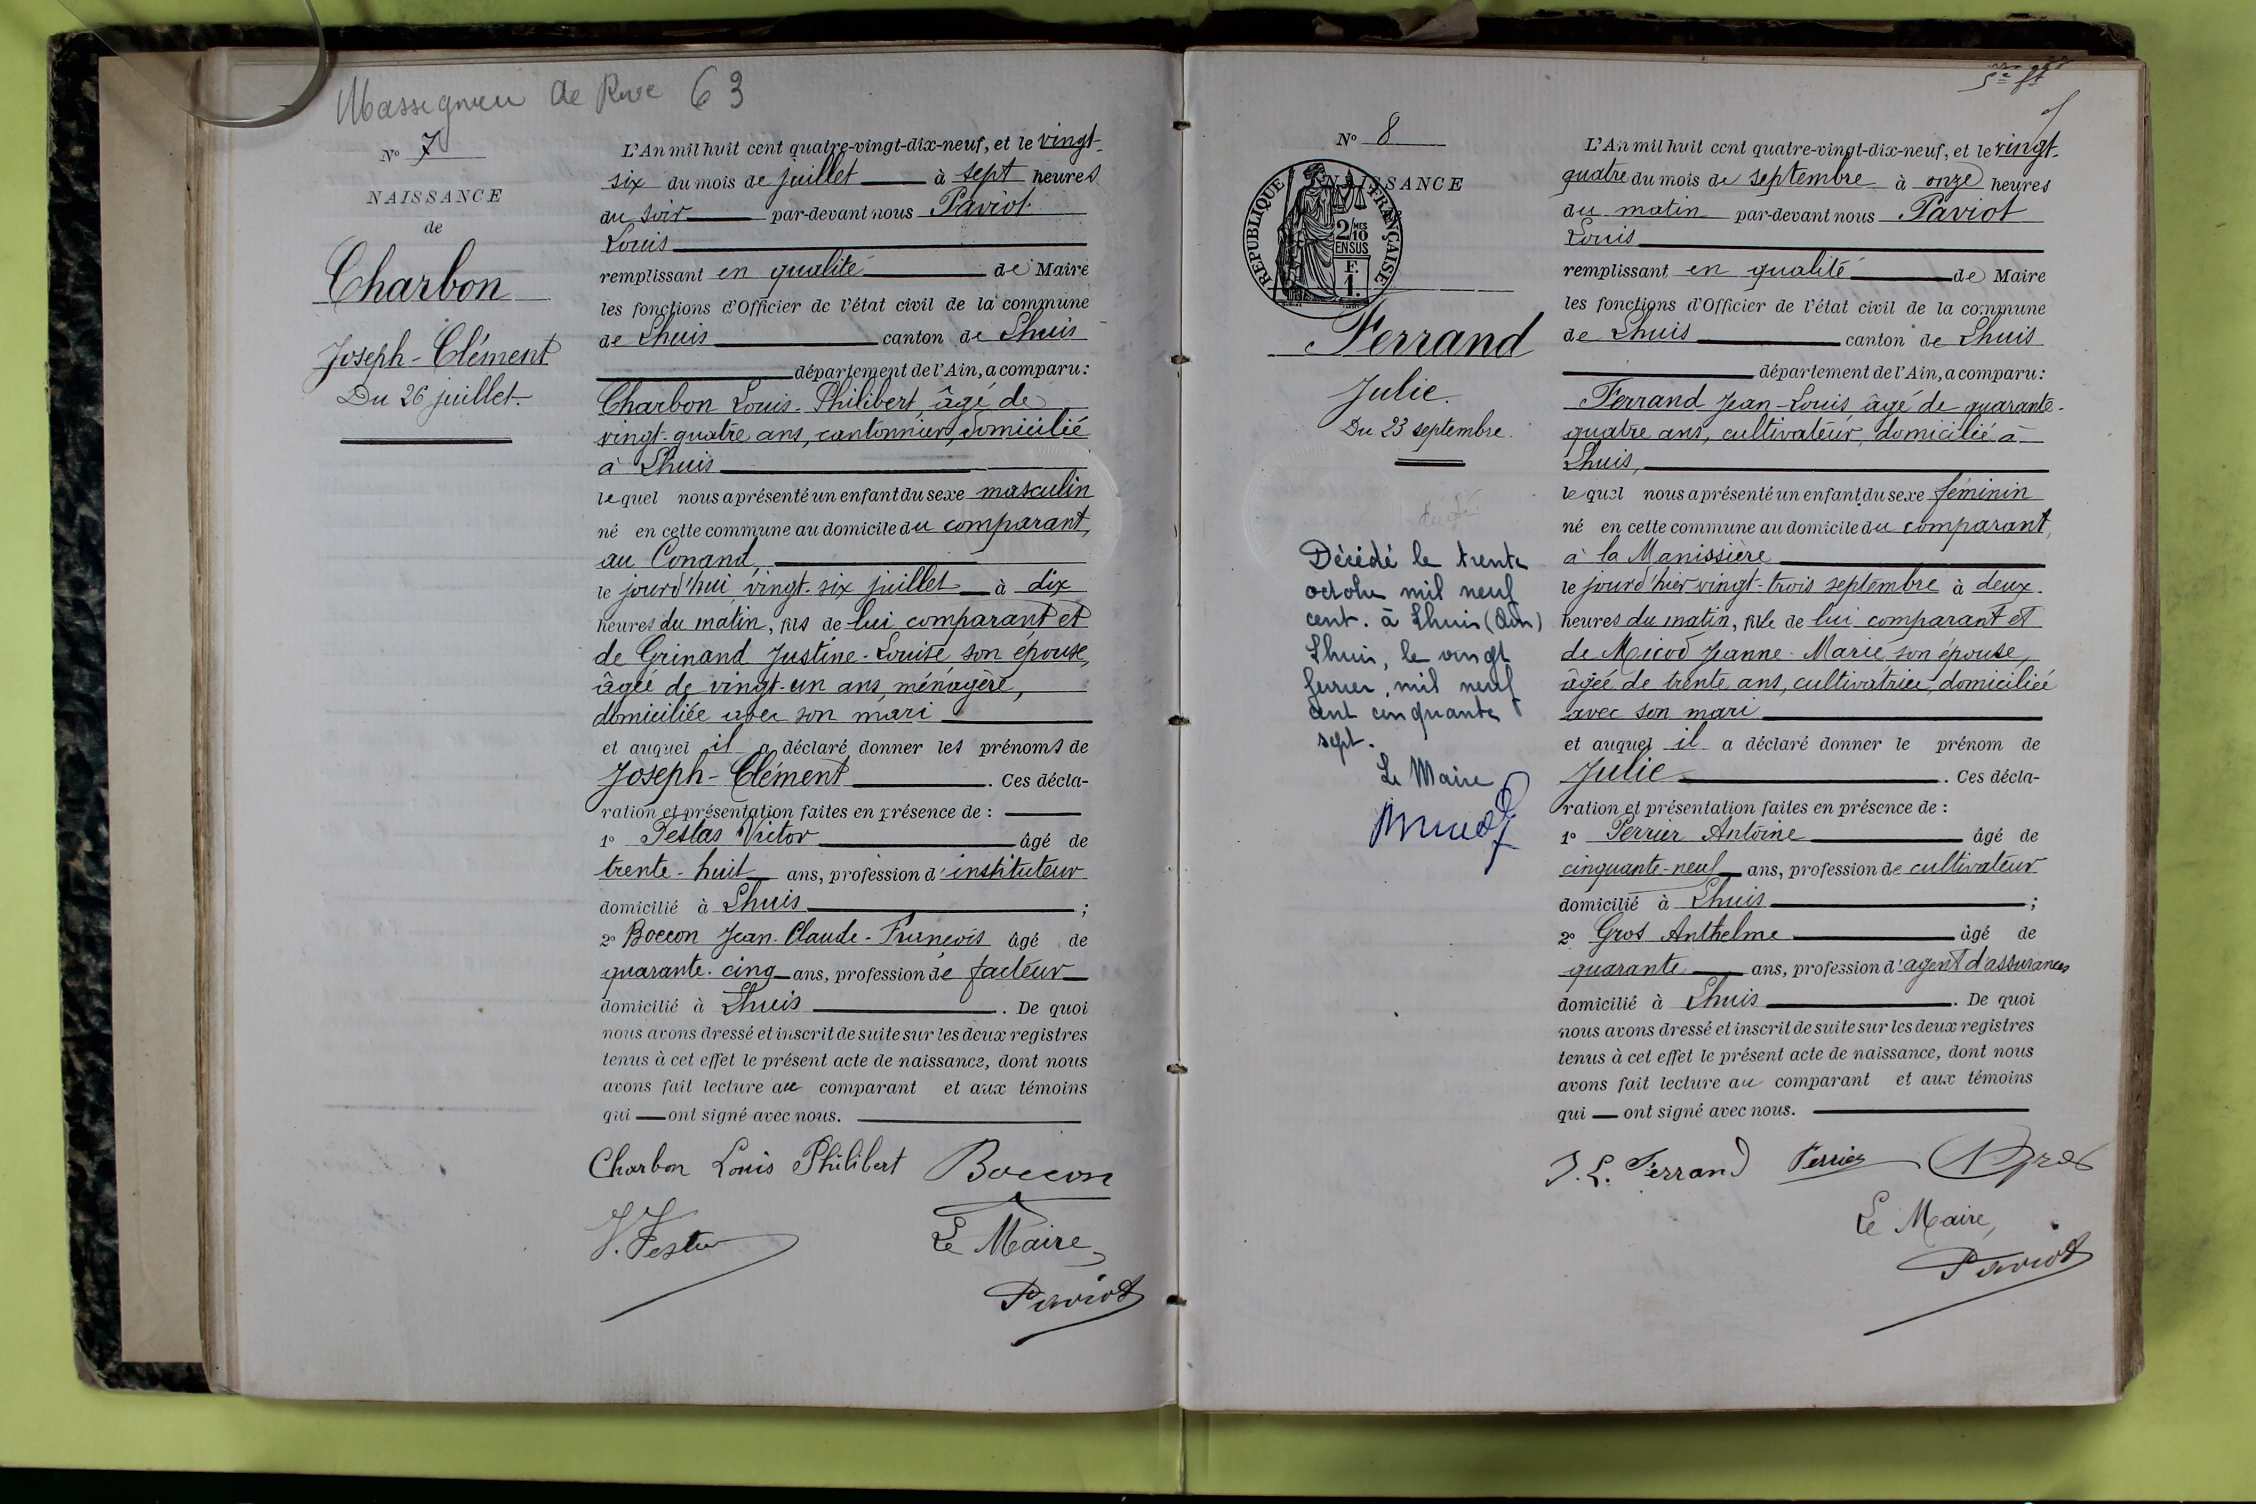 Massignieu de Rive 63
Nº 7
NAISSANCE
de
Charbon
Joseph-Clément
Du 26 juillet.
L'An mil huit cent quatre-vingt-dix-neuf, et le vingt-
six du mois de juillet à sept heures
du soir par-devant nous Paviot
Louis
remplissant en qualité de Maire
les fonctions d'Officier de l'état civil de la commune
de Lhuis canton de Lhuis
département de l'Ain, a comparu :
Charbon Louis-Philibert, âgé de
vingt-quatre ans, cantonnier, domicilié
à Lhuis
lequel nous a présenté un enfant du sexe masculin
né en cette commune au domicile du comparant,
au Conand,
le jourd'hui vingt-six juillet à dix
heures du matin, fils de lui comparant et
de Grinand Justine-Louise, son épouse,
âgée de vingt-un ans, ménagère,
domiciliée avec son mari
et auquel il a déclaré donner les prénoms de
Joseph-Clément . Ces décla-
ration et présentation faites en présence de :
1º Testas Victor âgé de
trente-huit ans, profession d'instituteur
domicilié à Lhuis ;
2º Boccon Jean-Claude-François âgé de
quarante-cinq ans, profession de facteur
domicilié à Lhuis . De quoi
nous avons dressé et inscrit de suite sur les deux registres
tenus à cet effet le présent acte de naissance, dont nous
avons fait lecture au comparant et aux témoins
qui ont signé avec nous.
Charbon Louis Philibert Boccon
V. Testas
Le Maire,
Paviot
Nº 8
NAISSANCE
REPUBLIQUE FRANÇAISE
2/10 MES
EN SUS
F.
1.
Ferrand
Julie.
Du 23 septembre.
Décédé le trente
octobre mil neuf
cent. à Lhuis (Ain)
Lhuis, le vingt
fevrier, mil neuf
cent cinquante
sept.
Le Maire
L'An mil huit cent quatre-vingt-dix-neuf, et le vingt-
quatre du mois de septembre à onze heures
du matin par-devant nous Paviot
Louis
remplissant en qualité de Maire
les fonctions d'Officier de l'état civil de la commune
de Lhuis canton de Lhuis
département de l'Ain, a comparu :
Ferrand Jean-Louis, âgé de quarante-
quatre ans, cultivateur, domicilié à
Lhuis,
lequel nous a présenté un enfant du sexe féminin
né en cette commune au domicile du comparant,
à la Manissière
le jourd'hier vingt-trois septembre à deux
heures du matin, fille de lui comparant et
de Micod Jeanne-Marie, son épouse,
âgée de trente ans, cultivatrice, domiciliée
avec son mari
et auquel il a déclaré donner le prénom de
Julie . Ces décla-
ration et présentation faites en présence de :
1º Perrier Antoine âgé de
cinquante-neuf ans, profession de cultivateur
domicilié à Lhuis ;
2º Gros Anthelme âgé de
quarante ans, profession d'agent d'assurances
domicilié à Lhuis . De quoi
nous avons dressé et inscrit de suite sur les deux registres
tenus à cet effet le présent acte de naissance, dont nous
avons fait lecture au comparant et aux témoins
qui ont signé avec nous.
J. L. Ferrand Perrier A Gros
Le Maire,
Paviot